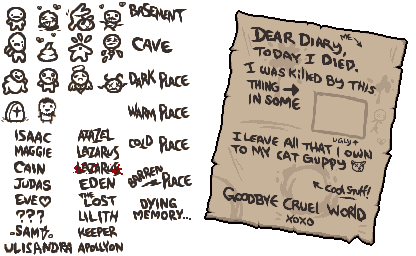 BASEMENT
CAVE
DARK PLACE
WARM PLACE
COLD PLACE
BARREN PLACE
DYING
MEMORY...
ISAAC
MAGGIE
CAIN
JUDAS
EVE♡
???
SAM
ULISANDRA
AZAZEL
LAZARUS
LAZARUS
EDEN
THE LOST
LILITH
KEEPER
APOLLYON
DEAR DIARY,
ME
TODAY I DIED.
I WAS KILLED BY THIS
THING →
IN SOME
UGLY↑
I LEAVE ALL THAT I OWN
TO MY CAT GUPPY
COOL STUFF!
GOODBYE CRUEL WORLD
XOXO